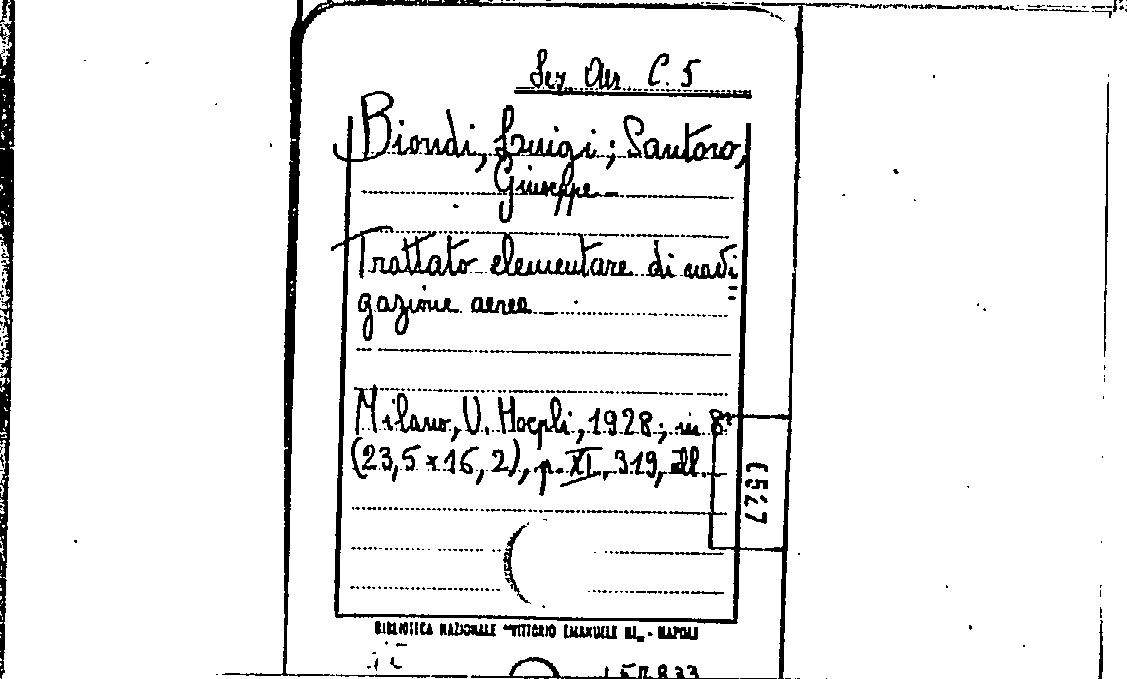 Sez. Aer. C. 5
Biondi, Luigi; Santoro,
Giuseppe –
Trattato elementare di navi
gazione aerea
Milano, U. Hoepli, 1928; in 8°
(23,5 x 16, 2), p. XI, 319, ill.
BIBLIOTECA NAZIONALE "VITTORIO EMANUELE III" - NAPOLI